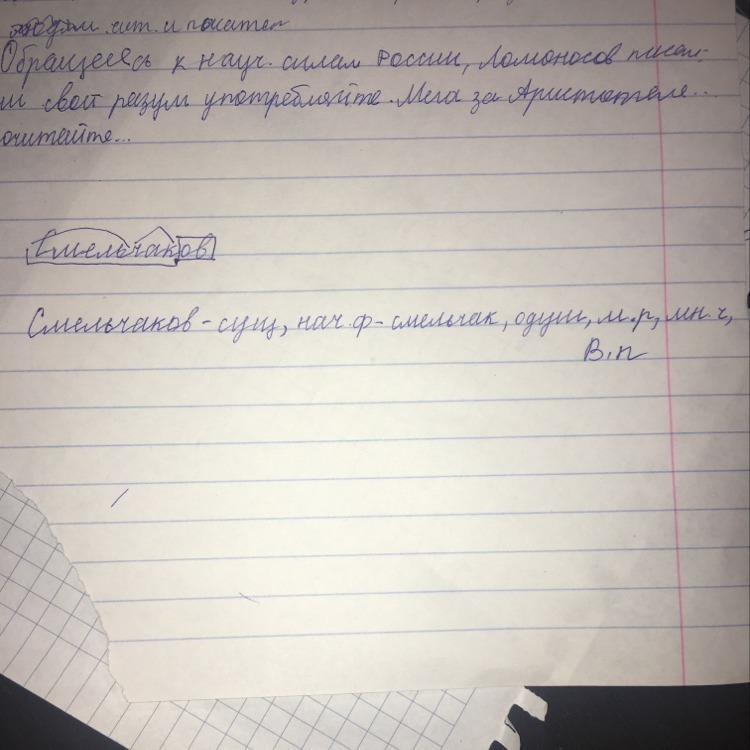 людям лит. и писател
Обращаясь к науч. силам России, Ломоносов писал:
и свой разум употребляйте. Меня за Аристотеле...
очитайте...
Смельчаков
Смельчаков - сущ, нач.ф - смельчак, одуш, м.р, мн.ч,
В.п